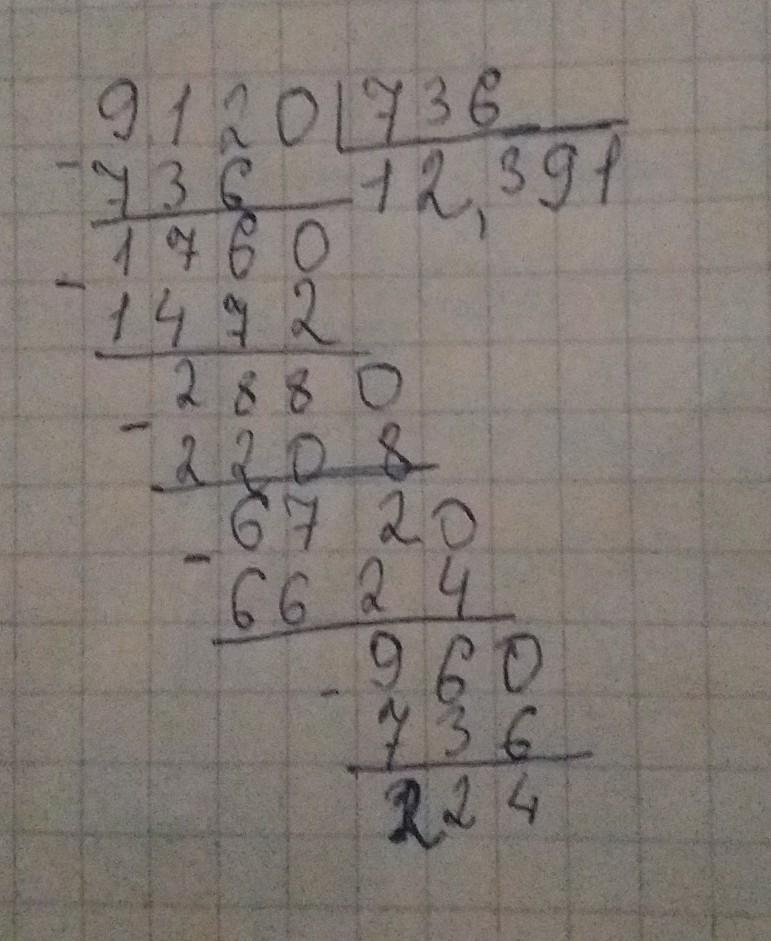 9120 736
- 736 12,391
1760
- 1472
2880
- 2208
6720
- 6624
960
- 736
224